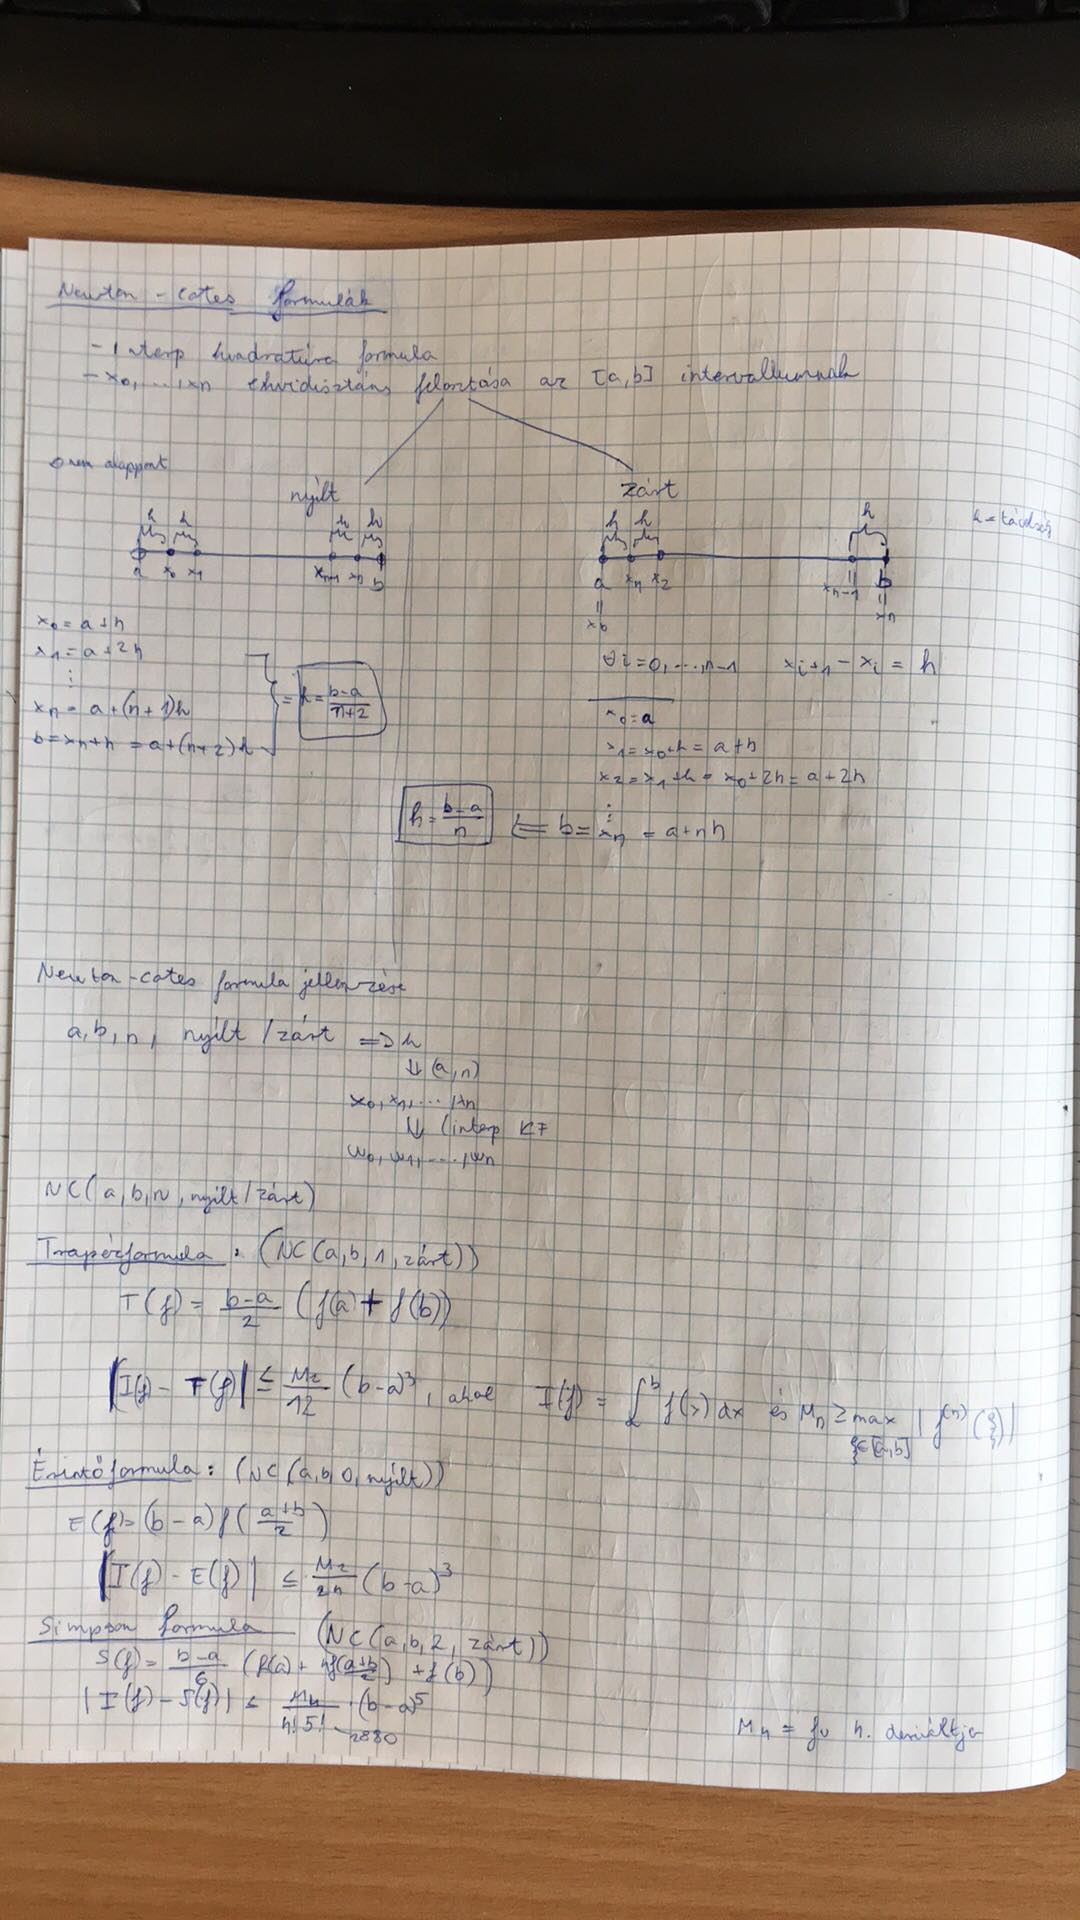 Newton-cotes formulák
- Interp kvadratúra formula
- x0, ..., xn ekvidisztáns felosztása az [a,b] intervallumnak
o nem alappont
nyílt
zárt
h h h h
h h h
h = távolság
a x0 x1 xn-1 xn b
a xn x2 xn-1 b
= x0
= xn
x0 = a+h
x1 = a+2h
⋮
xn = a+(n+1)h
b = xn+h = a+(n+2)h
= h = (b-a)/(n+2)
∀i=0,...,n-1 xi+1 - xi = h
x0 = a
x1 = x0+h = a+h
x2 = x1+h = x0+2h = a+2h
⋮
h = (b-a)/n ⇐ b = xn = a+nh
Newton-cotes formula jellemzése
a,b,n, nyílt/zárt => h
⇓ (a,n)
x0, x1, ..., xn
⇓ (interp KF
w0, w1, ..., wn
NC(a,b,n,nyílt/zárt)
Trapézformula: (NC(a,b,1,zárt))
T(f) = (b-a)/2 (f(a) + f(b))
|I(f) - T(f)| ≤ M2/12 (b-a)^3, ahol I(f) = ∫_a^b f(x) dx és Mn ≥ max_{ξ∈[a,b]} |f^(n)(ξ)|
Érintőformula: (NC(a,b,0,nyílt))
E(f) = (b-a) f((a+b)/2)
|I(f) - E(f)| ≤ M2/24 (b-a)^3
Simpson formula (NC(a,b,2,zárt))
S(f) = (b-a)/6 (f(a) + 4f((a+b)/2) + f(b))
|I(f) - S(f)| ≤ M4/(4!5!) · (b-a)^5
2880
M4 = fv 4. deriváltja